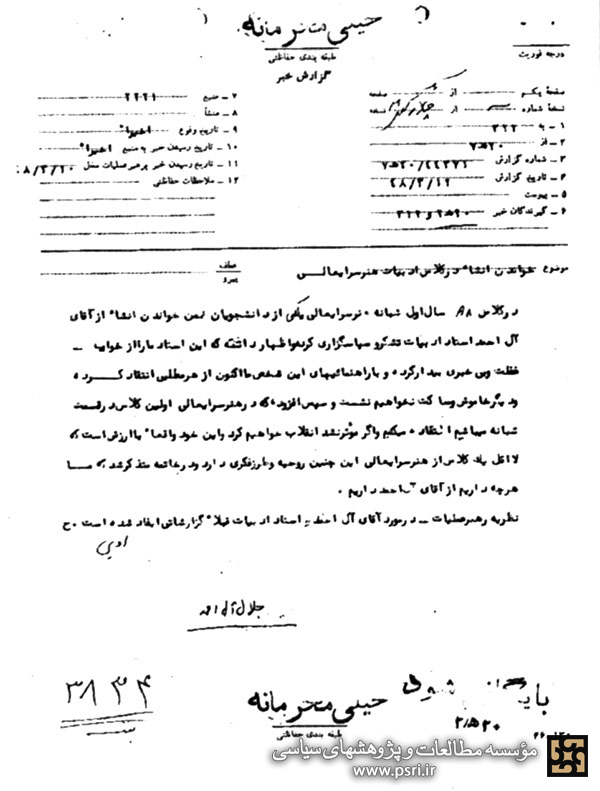 خیلی محرمانه
طبقه بندی حفاظتی
گزارش خبر
درجه فوریت
صفحه یکم از صفحه
نسخه شماره از نسخه
۱ ـ به ۳۲۲
۲ ـ از ۲۰ﻫ۷
۳ ـ شماره گزارش
۴ ـ تاریخ گزارش
۵ ـ پیوست
۶ ـ گیرندگان خبر
۷ ـ منبع ۲۲۲۱
۸ ـ منشأ
۹ ـ تاریخ وقوع اخیرا"
۱۰ ـ تاریخ رسیدن خبر به منبع اخیرا"
۱۱ ـ تاریخ رسیدن خبر برهبر عملیات محل
۱۲ ـ ملاحظات حفاظتی
موضوع خواندن انشاء در کلاس ادبیات هنرسرایعالی
عطف
پیرو
در کلاس ۸۸ سال اول شبانه هنرسرایعالی یکی از دانشجویان ضمن خواندن انشاء از آقای
آل احمد استاد ادبیات تشکر و سپاسگزاری کرده و اظهار داشته که این استاد ما را از خواب ـ
غفلت و بی خبری بیدار کرده و با راهنمائیهای این شخص ما اکنون از هر مطلبی انتقاد کرده
و دیگر خاموش و ساکت نخواهیم نشست و سپس افزوده که در هنرسرایعالی اولین کلاس در قسمت
شبانه میباشیم انتقاد میکنیم و اگر موثر نشد انقلاب خواهیم کرد و این خود واقعا" با ارزش است که
لااقل یک کلاس از هنرسرایعالی این چنین روحیه و طرز فکری دارد و در خاتمه متذکر شده که ما
هرچه داریم از آقای آل احمد داریم .
نظریه رهبر عملیات ـ در مورد آقای آل احمد استاد ادبیات قبلا" گزارشاتی ایفاد شده است . ح
جلال آل احمد
۳۸۳۴
خیلی محرمانه
طبقه بندی حفاظتی
۲۰ﻫ۲
مؤسسه مطالعات و پژوهشهای سیاسی
www.psri.ir